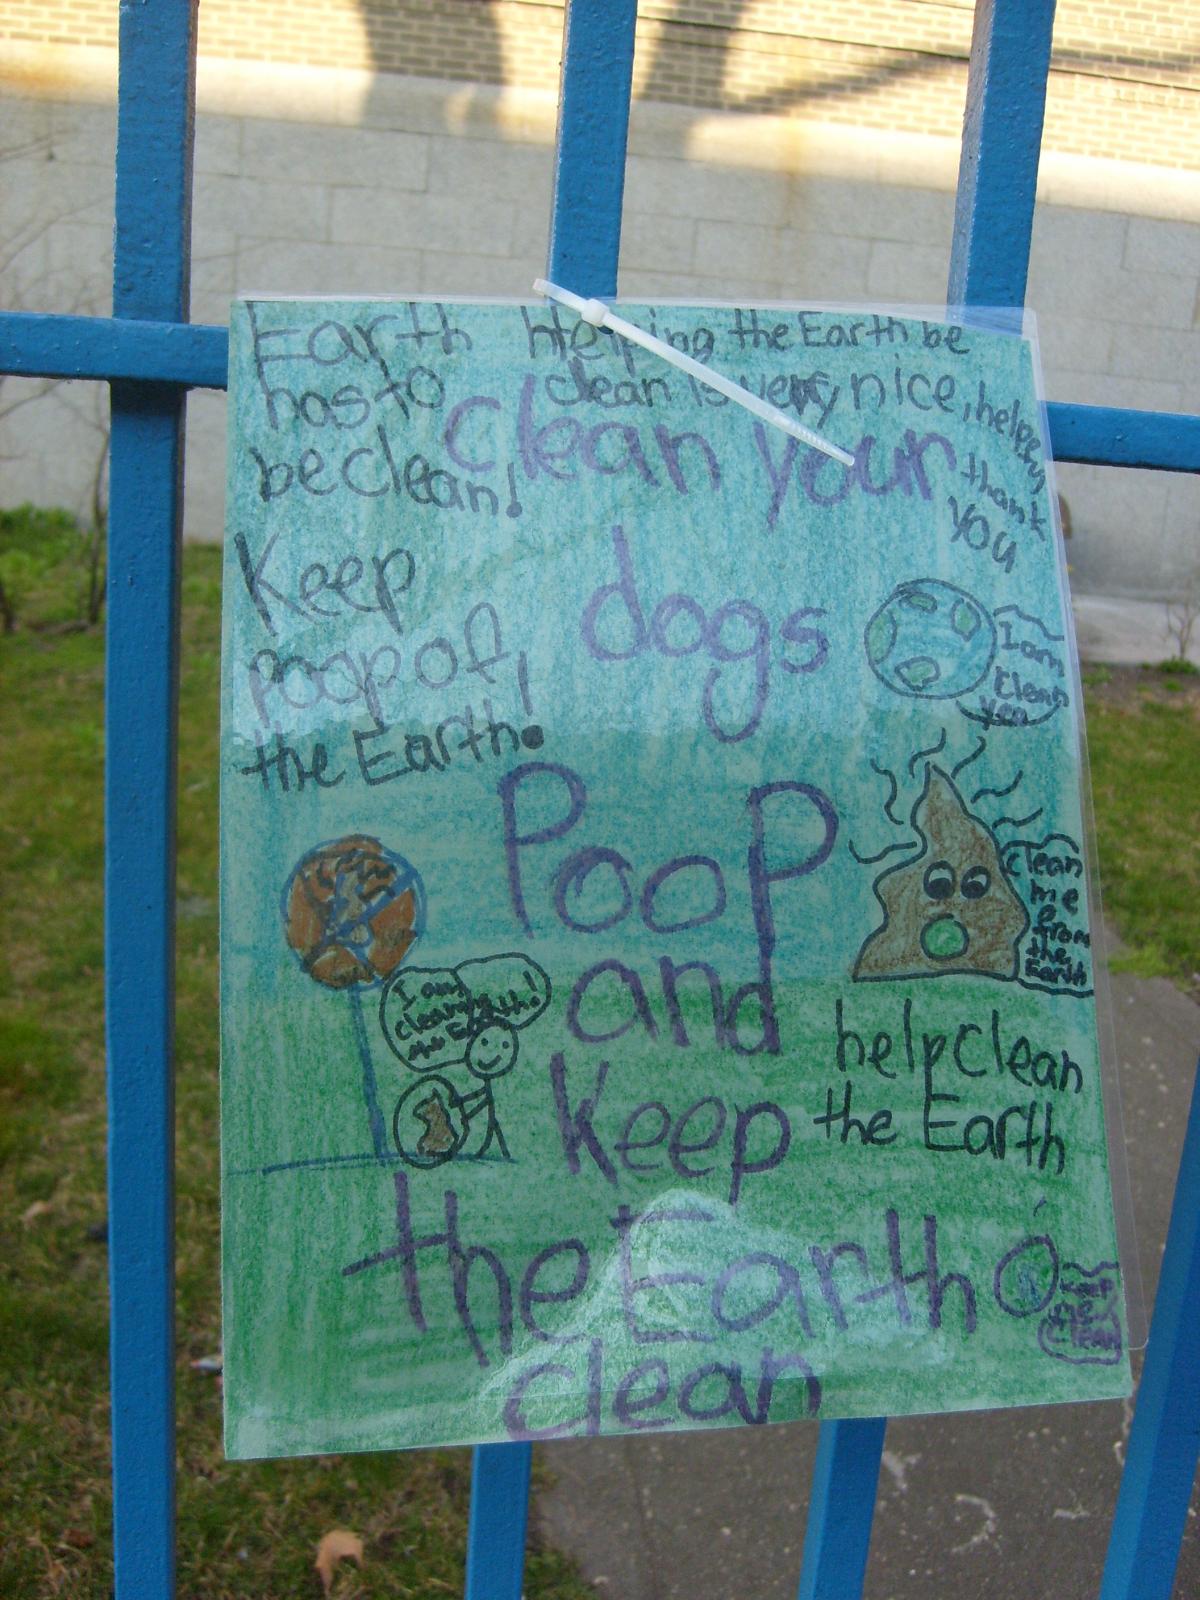 Earth
has to
be clean!
Helping the Earth be
clean is very nice, helpers
thank
you
Keep
Poop of,
the Earth!
clean your
dogs
Poop
and
Keep
the Earth
clean
I am
clean
yea
clean
me
from
the
Earth
I am
cleaning
the Earth!
help clean
the Earth
Keep
me
clean